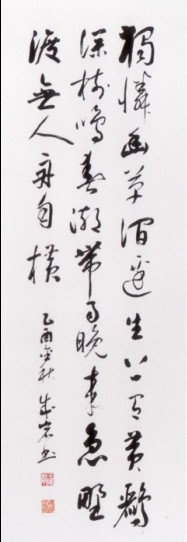 獨憐幽草澗邊生上有黃鸝
深樹鳴春潮帶雨晚來急野
渡無人舟自橫
乙酉金秋 書